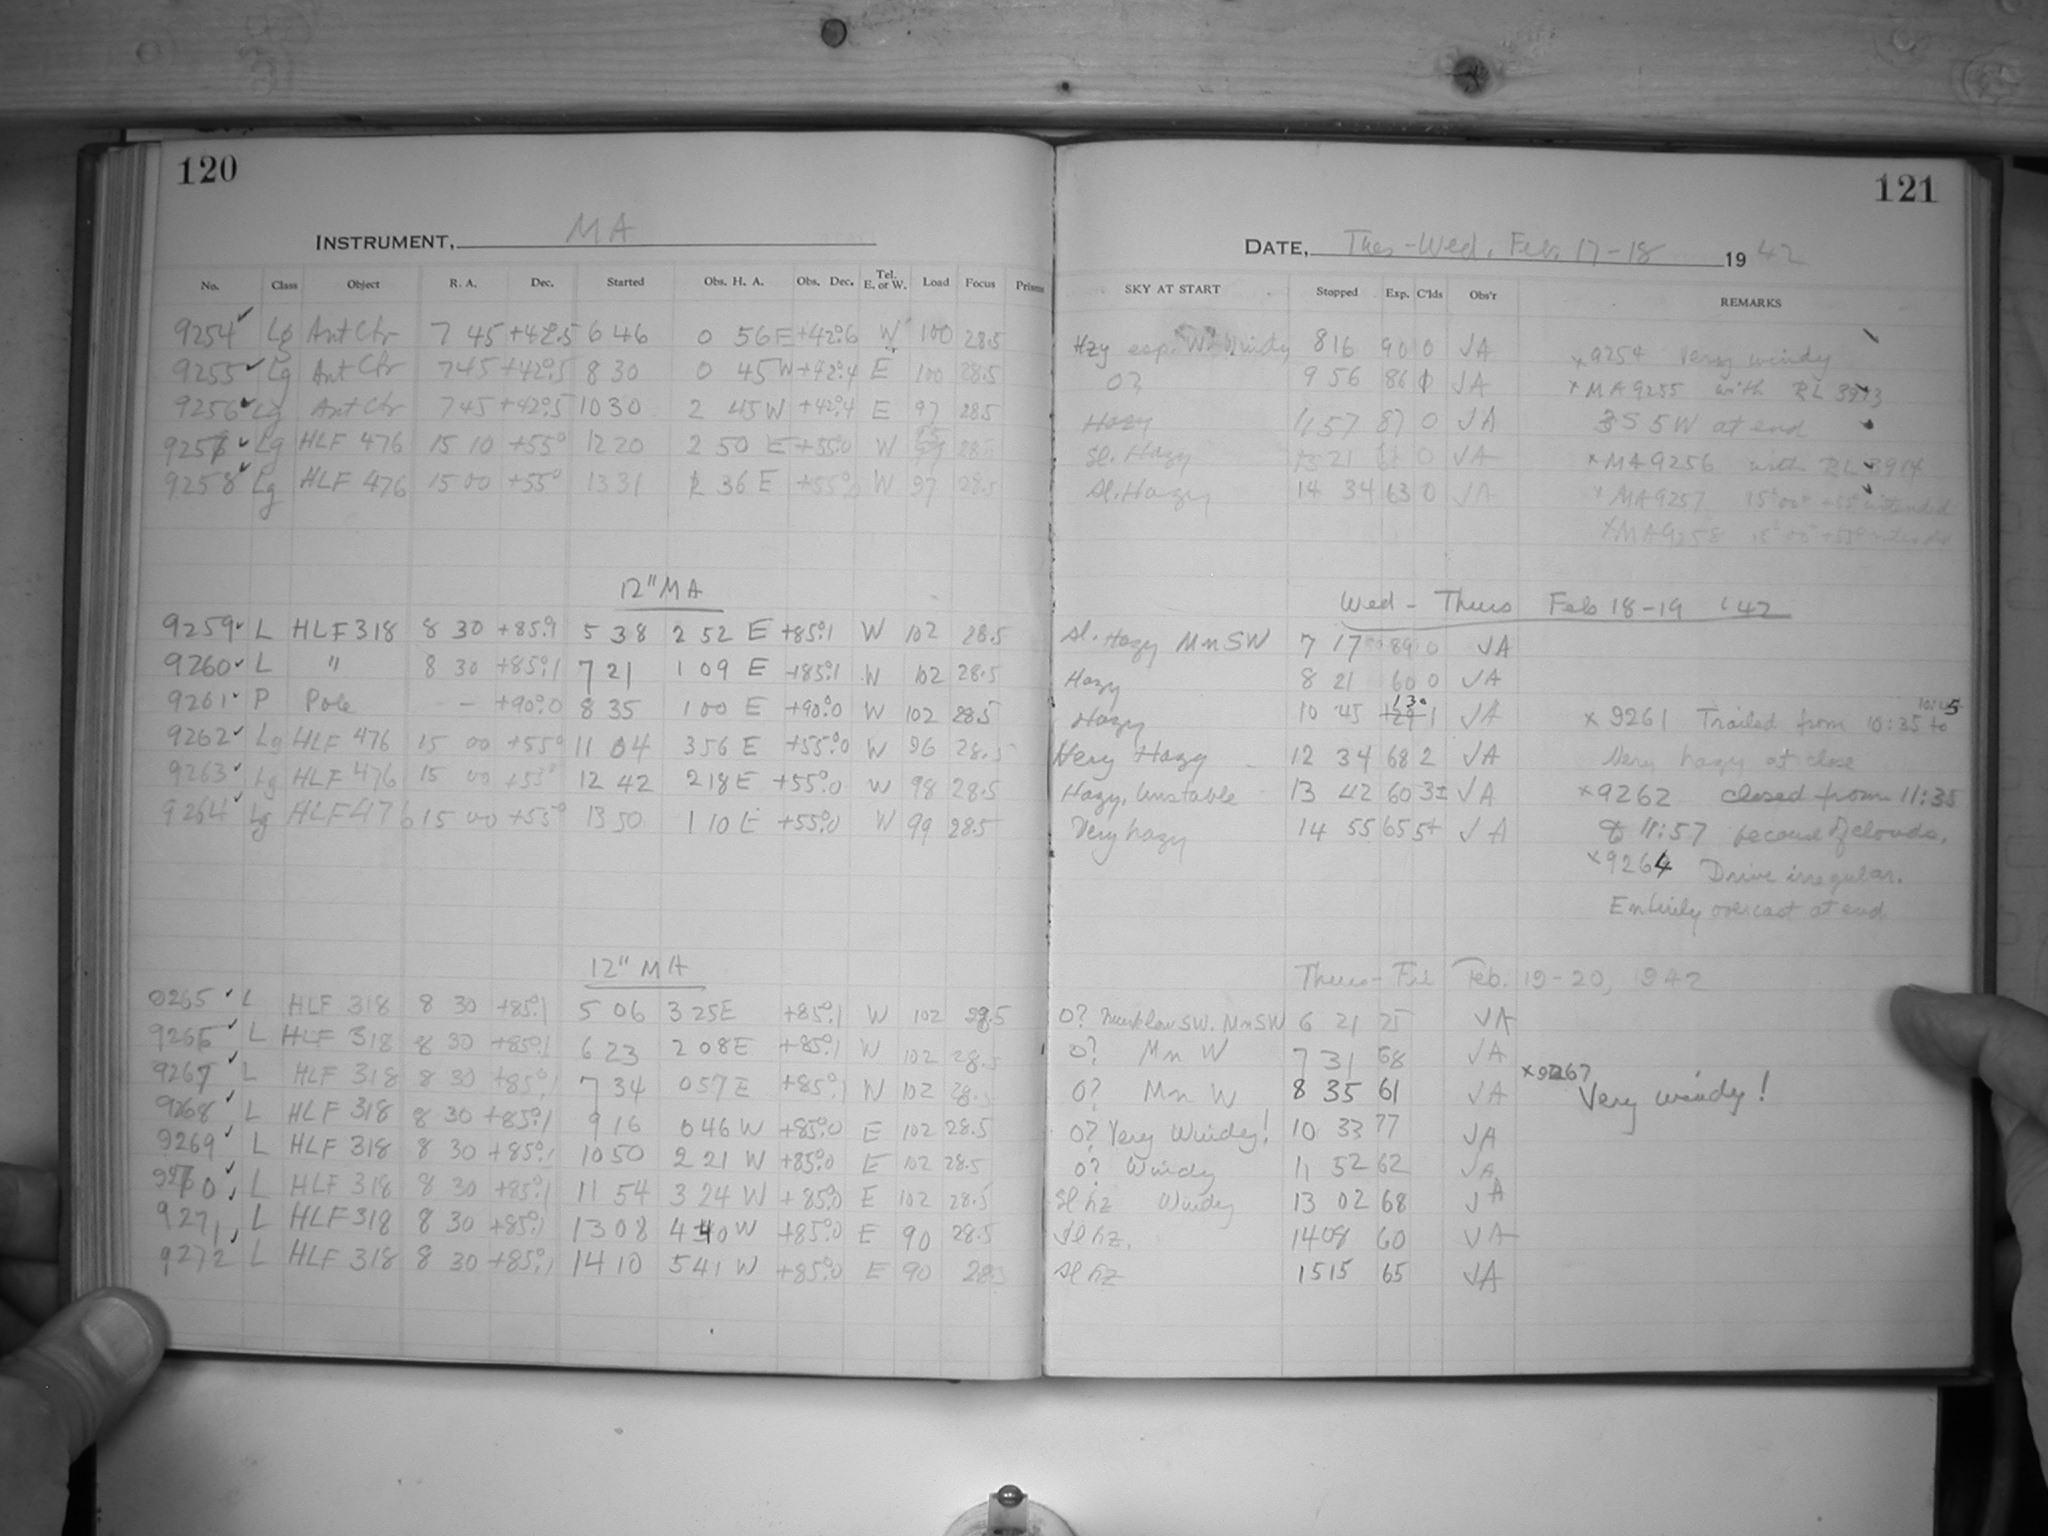 120
INSTRUMENT, MA
No. Class Object R. A. Dec. Started Obs. H. A. Obs. Dec. Tel. E. or W. Load Focus Prisms
9254 Lg Ant Ctr 7 45 +42°.5 6 46 0 56 E +42°.6 W 100 28.5
9255 Lg Ant Ctr 7 45 +42°.5 8 30 0 45 W +42°.4 E 100 28.5
9256 Lg Ant Ctr 7 45 +42°.5 10 30 2 45 W +42°.4 E 97 28.5
9257 Lg HLF 476 15 10 +55° 12 20 2 50 E +55°.0 W 28.5
9258 Lg HLF 476 15 00 +55° 13 31 1 36 E +55° W 97 28.5
12" MA
9259 L HLF 318 8 30 +85°.1 5 38 2 52 E +85°.1 W 102 28.5
9260 L " 8 30 +85°.1 7 21 1 09 E +85°.1 W 102 28.5
9261 P Pole - +90°.0 8 35 1 00 E +90°.0 W 102 28.5
9262 Lg HLF 476 15 00 +55° 11 04 3 56 E +55°.0 W 96 28.5
9263 Lg HLF 476 15 00 +55° 12 42 2 18 E +55°.0 W 98 28.5
9264 Lg HLF 476 15 00 +55° 13 50 1 10 E +55°.0 W 99 28.5
12" MA
9265 L HLF 318 8 30 +85°.1 5 06 3 25 E +85°.1 W 102 28.5
9266 L HLF 318 8 30 +85°.1 6 23 2 08 E +85°.1 W 102 28.5
9267 L HLF 318 8 30 +85°.1 7 34 0 57 E +85°.1 W 102 28.5
9268 L HLF 318 8 30 +85°.1 9 16 0 46 W +85°.0 E 102 28.5
9269 L HLF 318 8 30 +85°.1 10 50 2 21 W +85°.0 E 102 28.5
9270 L HLF 318 8 30 +85°.1 11 54 3 24 W +85°.0 E 102 28.5
9271 L HLF 318 8 30 +85°.1 13 08 4 40 W +85°.0 E 90 28.5
9272 L HLF 318 8 30 +85°.1 14 10 5 41 W +85°.0 E 90 28.5
121
DATE, Thes-Wed. Feb. 17-18 1942
SKY AT START Stopped Exp. C'lds Obs'r REMARKS
Hzy esp. W. Windy 8 16 90 0 JA × 9254 Very windy
0? 9 56 86 0 JA × MA 9255 with RL 3913
Hazy 11 57 87 0 JA 3S 5W at end
Sl. Hazy 13 21 0 JA × MA 9256 with RL 3914
Sl. Hazy 14 34 63 0 JA × MA 9257 15 00 +55° intended
× MA 9258 15 00 +55° intended
Wed - Thurs Feb 18-19 '42
Sl. Hazy Mn SW 7 17 89 0 JA
Hazy 8 21 60 0 JA
Hazy 10 45 129 130 1 JA × 9261 Trailed from 10:35 to 10:45
Very Hazy 12 34 68 2 JA Very hazy at close
Hazy, Unstable 13 42 60 3± JA × 9262 closed from 11:35
Very hazy 14 55 65 5+ JA to 11:57 because of clouds.
× 9264 Drive irregular.
Entirely overcast at end
Thurs - Fri Feb. 19-20, 1942
0? Murk low SW. Mn SW 6 21 75 JA
0? Mn W 7 31 68 JA
0? Mn W 8 35 61 JA × 9267 Very windy!
0? Very Windy! 10 33 77 JA
0? Windy 11 52 62 JA
Sl hz Windy 13 02 68 JA
Sl hz. 14 08 60 JA
Sl hz 15 15 65 JA